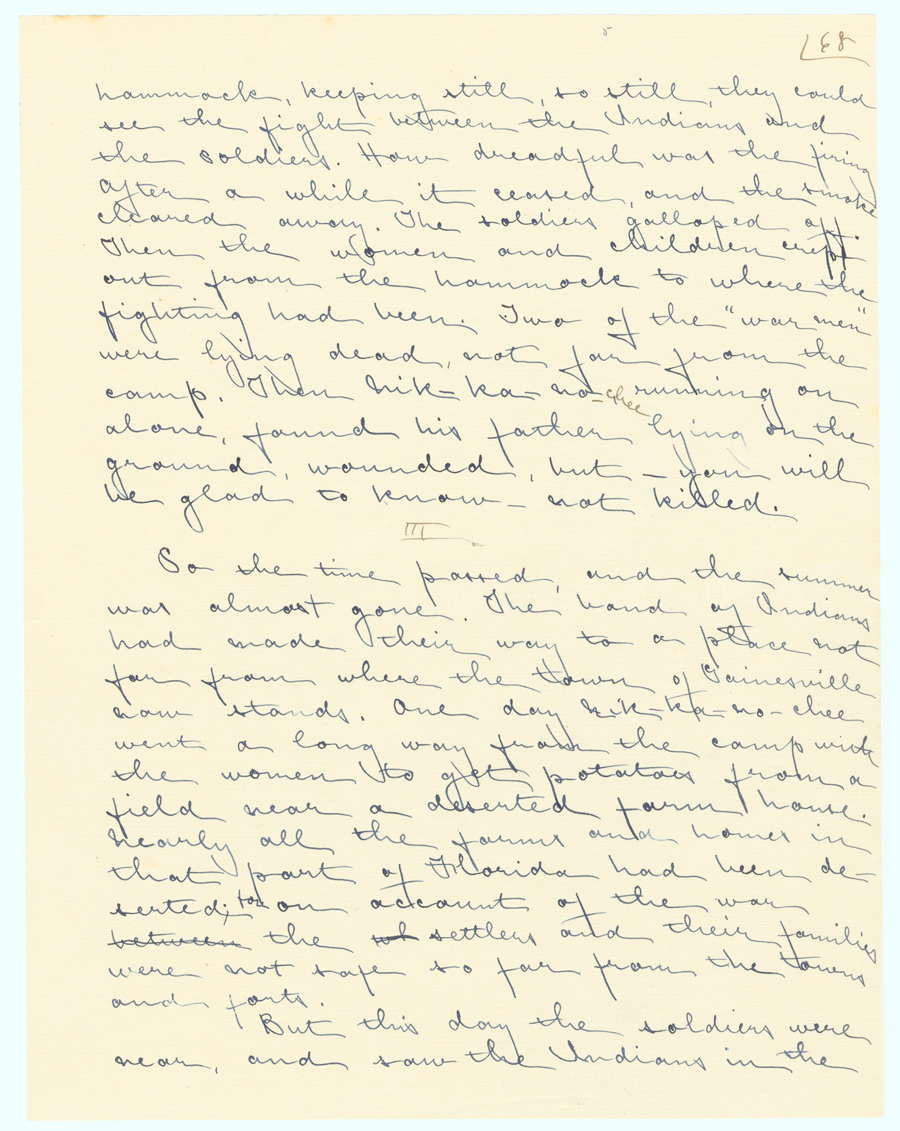 68
hammock, keeping still, so still, they could
see the fight between the Indians and
the soldiers. How dreadful was the firing
After a while it ceased, and the smoke
cleared away. The soldiers galloped off.
Then the women and children crept
out from the hammock to where the
fighting had been. Two of the "war men"
were lying dead, not far from the
camp. Then Nik-ka-no-chee running on
alone, found his father lying on the
ground, wounded, but – you will
be glad to know – not killed.
III
So the time passed, and the summer
was almost gone. The band of Indians
had made their way to a place not
far from where the town of Gainesville
now stands. One day Nik-ka-no-chee
went a long way from the camp with
the women to get potatoes from a
field near a deserted farm house.
Nearly all the farms and homes in
that part of Florida had been de-
serted; for on account of the war
between the wh settlers and their families
were not safe so far from the towns
and forts.
But this day the soldiers were
near, and saw the Indians in the